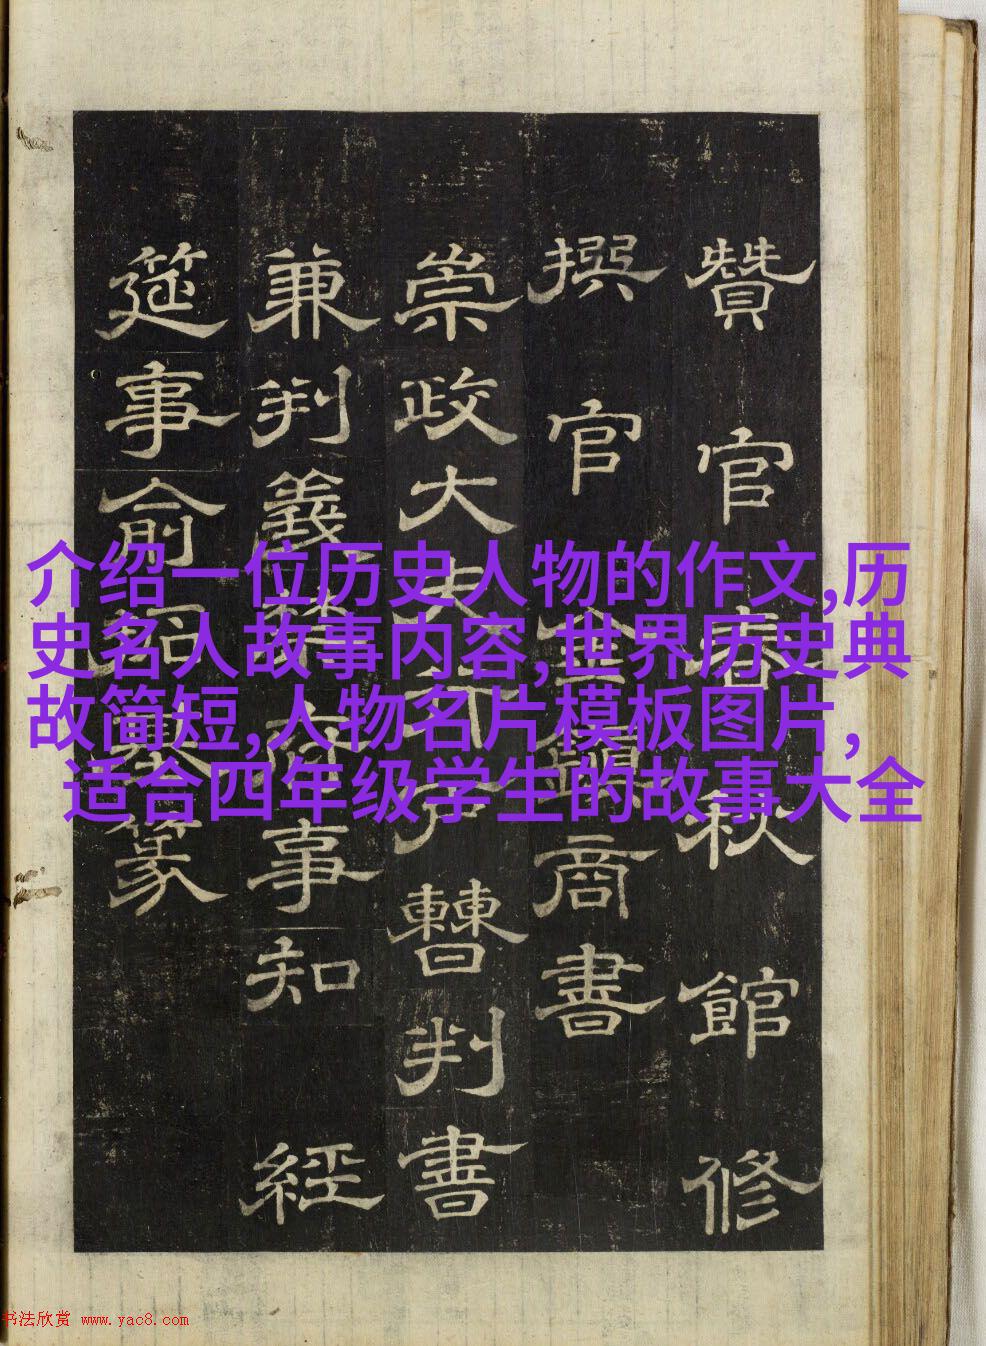 介绍一位历史人物的作文,历
史名人故事内容,世界历史典
故简短,人物名片模板图片,
适合四年级学生的故事大全
贊官春秋館修
撰官商書
崇政大夫行戶曹判書
兼判義禁府事知經
筵事俞篆
书法欣赏 www.yac8.com